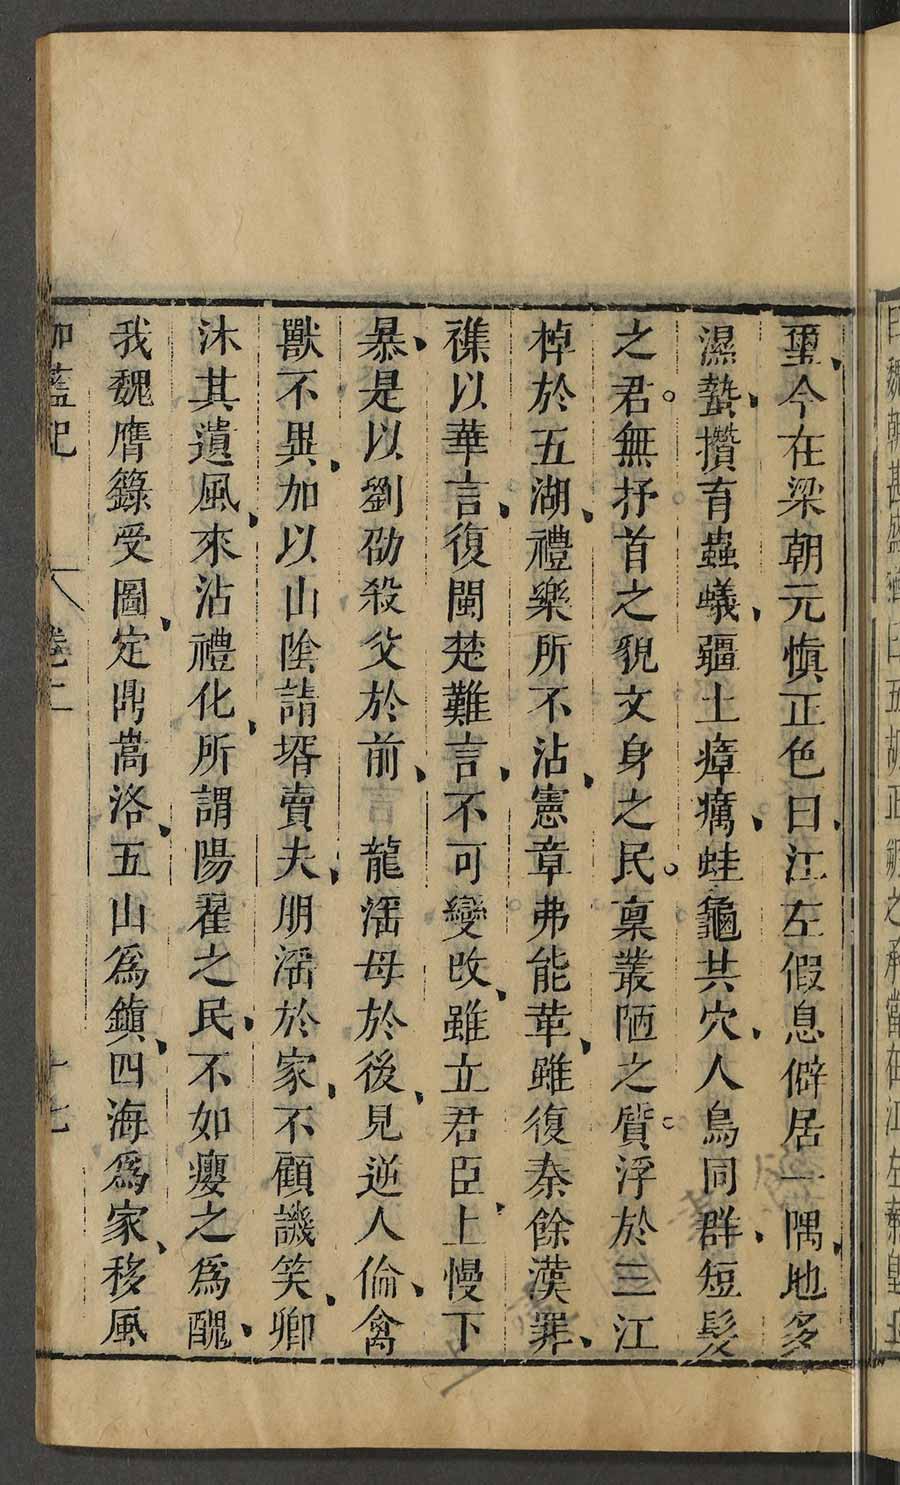 璽今在梁朝元愼正色曰江左假息僻居一隅地多
濕蟄攢育蟲蟻疆土瘴癘蛙龜共穴人鳥同群短髮
之君無抒首之貌文身之民稟叢陋之質浮於三江
棹於五湖禮樂所不沾憲章弗能革雖復秦餘漢罪
襍以華言復閩楚難言不可變改雖立君臣上慢下
暴是以劉劭殺父於前龍淫母於後見逆人倫禽
獸不異加以山陰請壻賣夫朋淫於家不顧譏笑卿
沐其遺風來沾禮化所謂陽翟之民不如癭之爲醜
我魏膺籙受圖定鼎嵩洛五山爲鎮四海爲家移風
伽藍記 卷二 十七